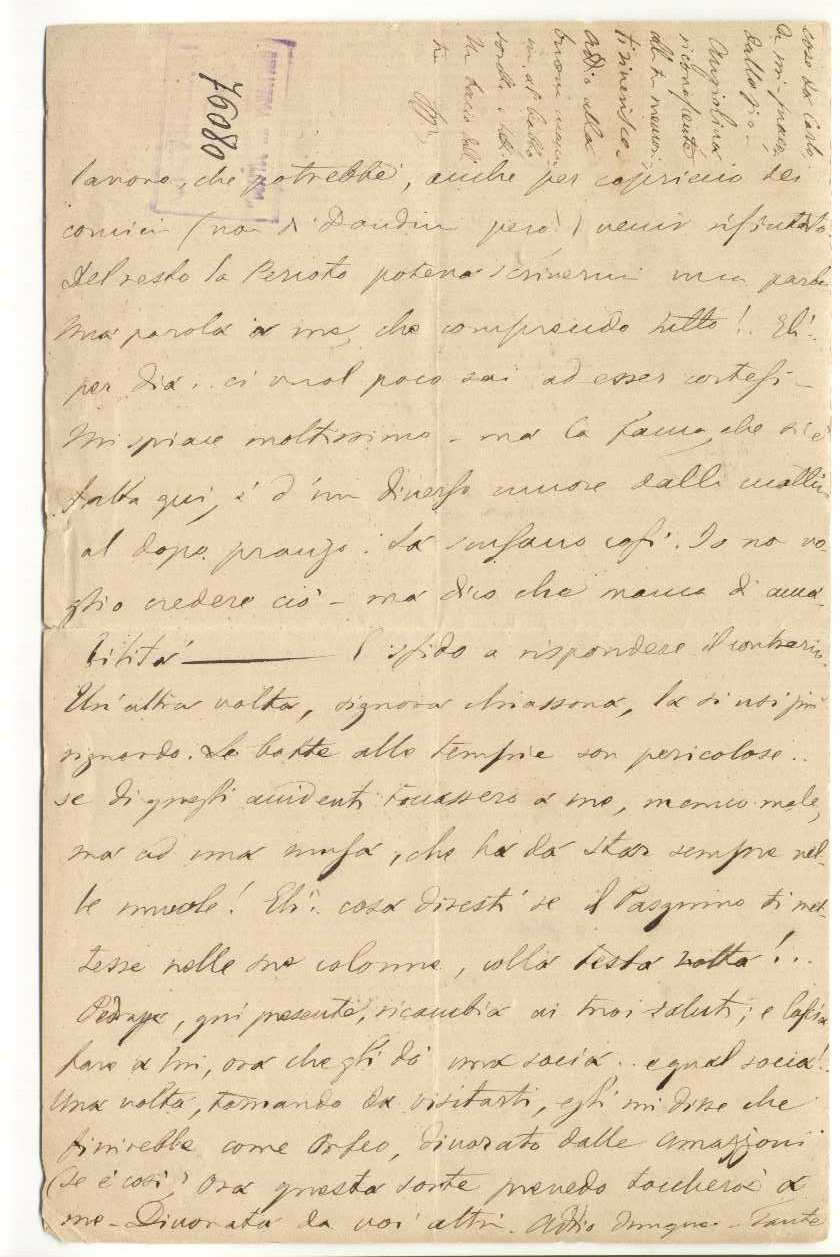 lavoro, che potrebbe, anche per capriccio dei
comici (non di Dondini però) venir rifiutato.
Del resto la Percoto poteva scrivermi una parola
Una parola a me, che comprendo tutto! Eh!..
per dia.. ci vuol poco sai ad esser cortesi -
Mi spiace moltissimo - ma la fama, che si è
fatta qui, è d'un diverso umore dalla mattina
al dopo pranzo. La così. Io no vo-
glio credere ciò - ma dico che manca di ama-
bilità — Ti sfido a rispondere il contrario.
Un'altra volta, signora chiassona, la si usi più
riguardo. Le botte alle tempie son pericolose..
se di questi accidenti toccassero a me, manco male,
ma ad una musa, che ha da star sempre nel-
le nuvole! Eh!.. cosa diresti se il Pasquino ti met-
tesse nelle sue colonne, colla testa rotta!..
qui presente, ricambia ai tuoi saluti; e lascia
fare a lui, ora che gli dò una socia.. e qual socia!
Una volta, tornando da visitarti, egli mi disse che
finirebbe come Orfeo, divorato dalle amazzoni
(se è così) Ora questa sorte prevedo toccherà a
me - Divorata da voi altri. Addio dunque - Tante
cose da Carlo,
Angiolina
riconoscente
alla tua memoria
ti riverisce.
Addio alla
buona mam-
ma, al babbo
sorella e
Un bacio dal
76080